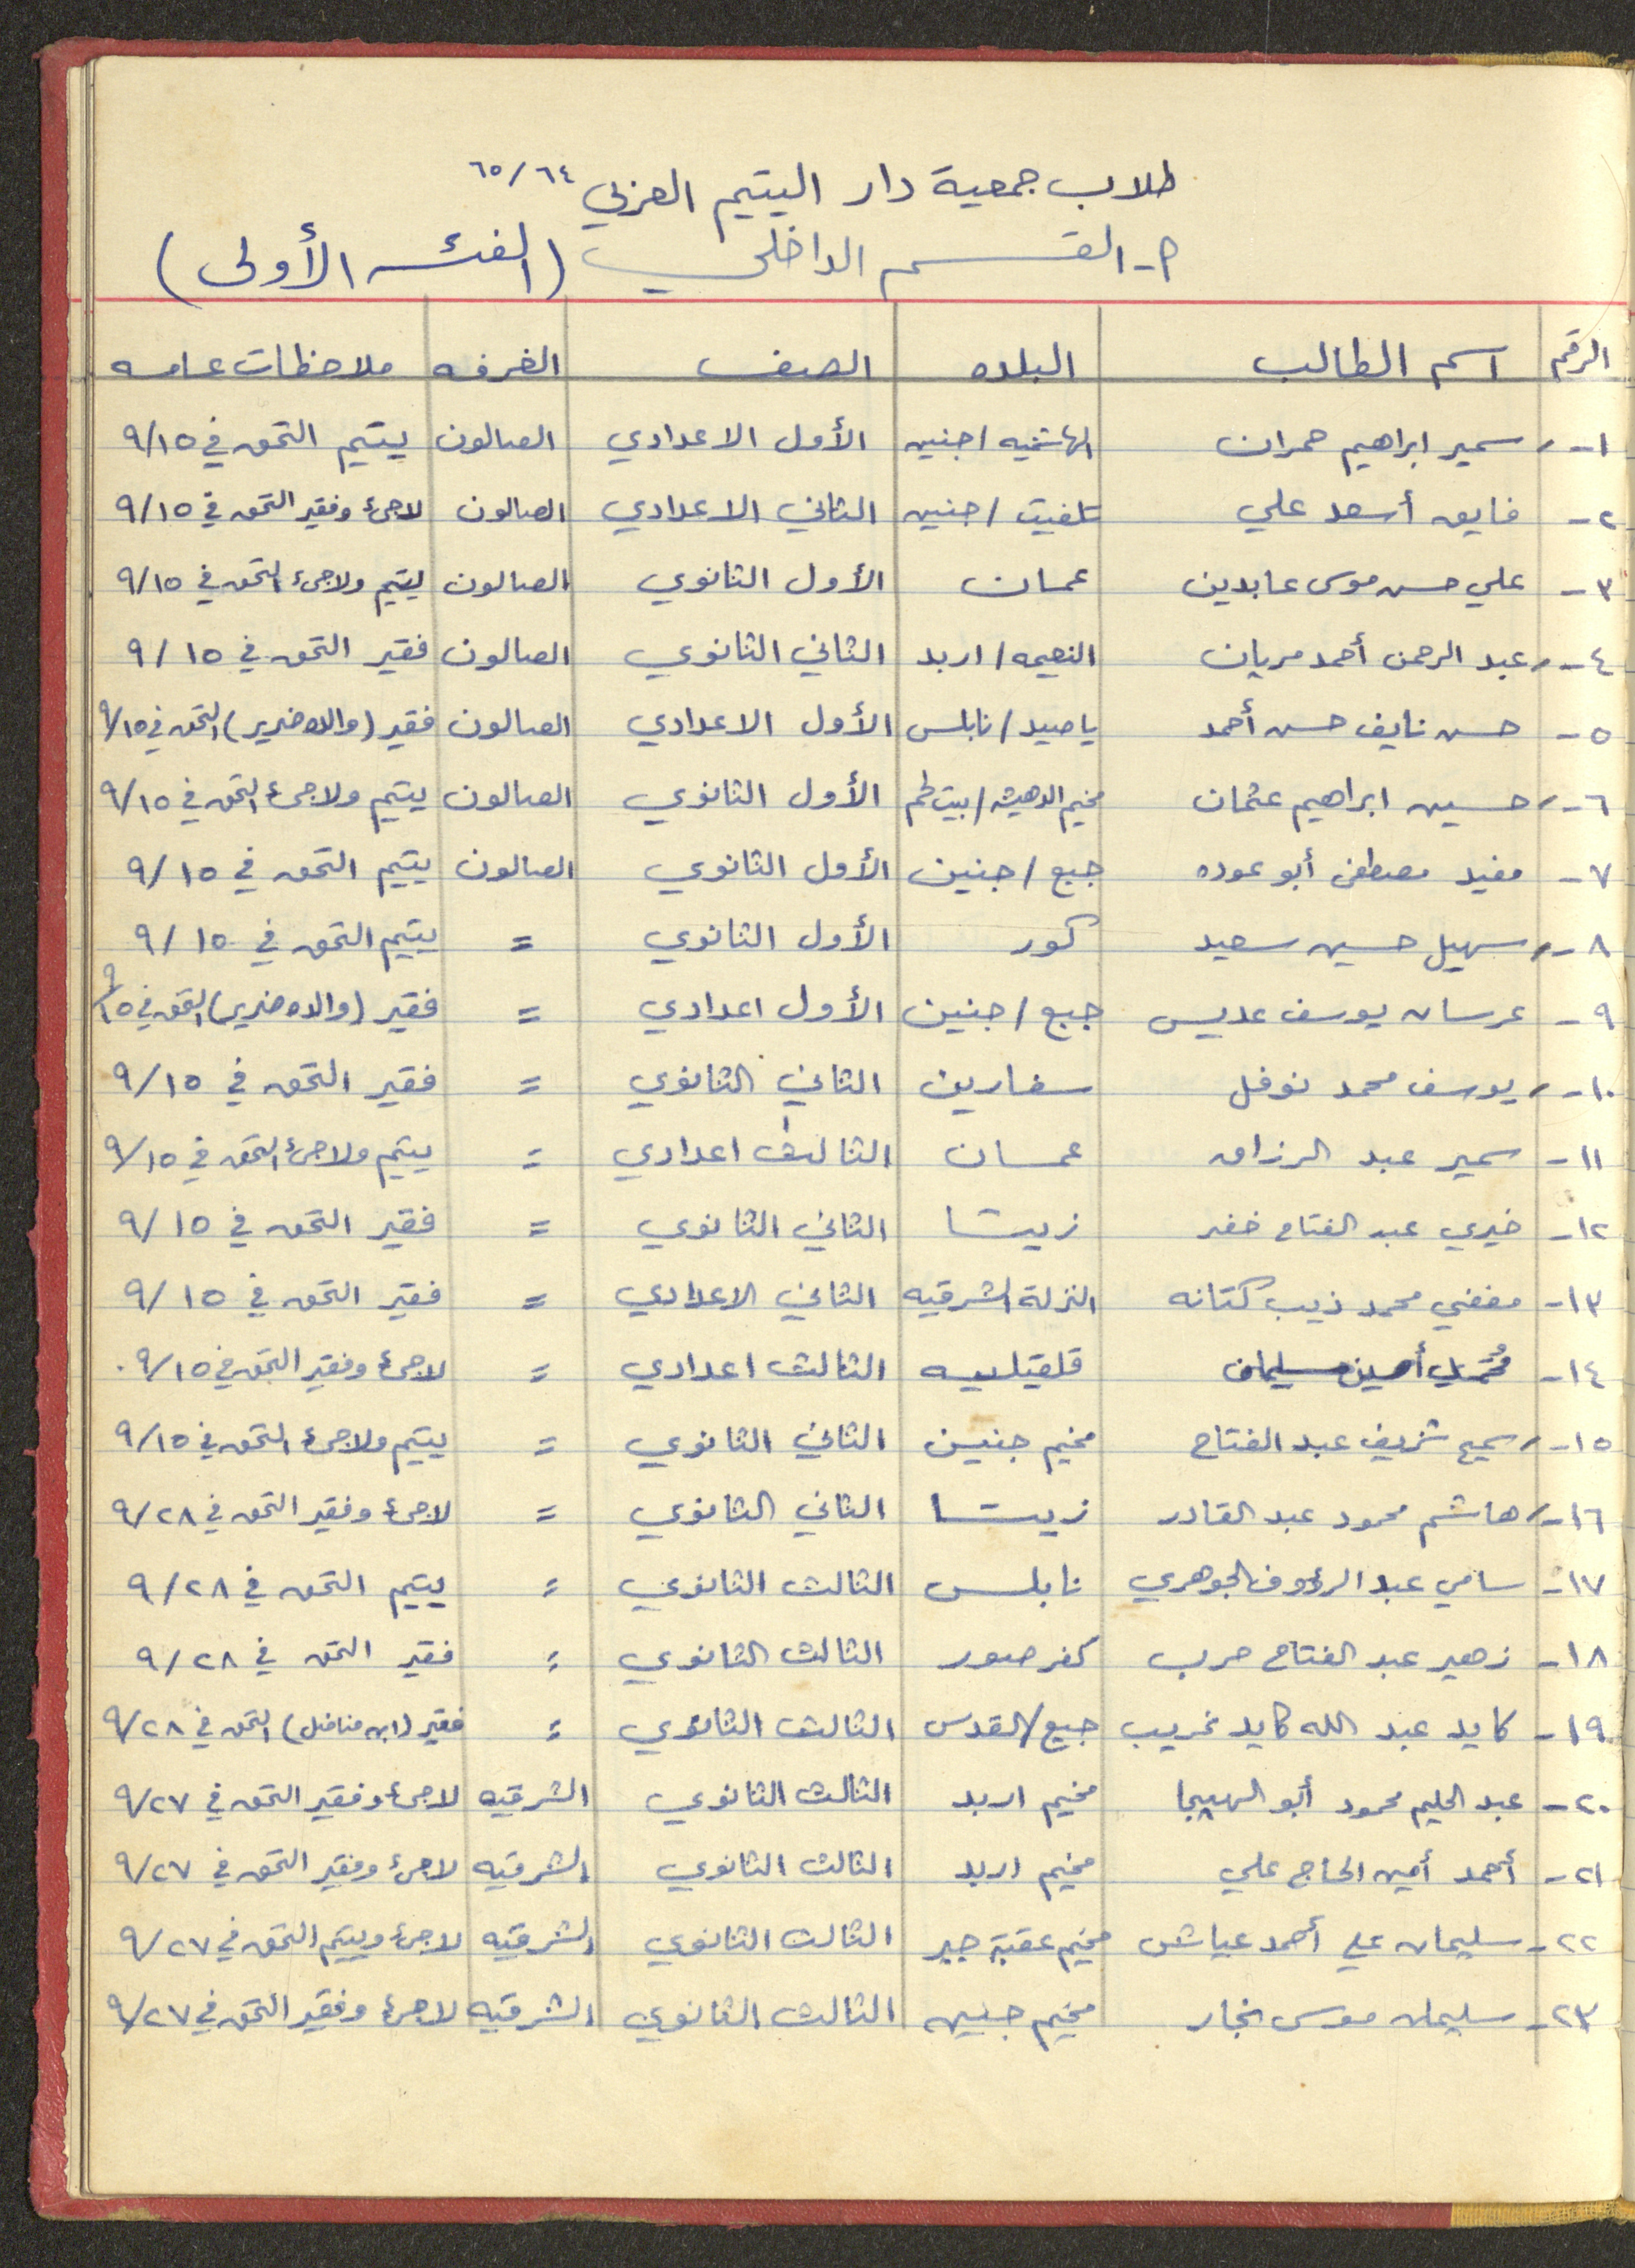 طلاب جمعية دار اليتيم العربي ٦٤/٦٥
٢- القسم الداخلي (الفئه الأولى)
الرقم اسم الطالب البلده الصف الغرفه ملاحظات عامه
١- سمير ابراهيم حمران الهاشميه/جنين الأول الاعدادي الصالون يتيم التحق في ٩/١٥
٢- فايق أسعد علي تلفيت/جنين الثاني الاعدادي الصالون لاجئ وفقير التحق في ٩/١٥
٣- علي حسن موسى عابدين عمان الأول الثانوي الصالون يتيم ولاجئ التحق في ٩/١٥
٤- عبد الرحمن أحمد مريان النعيمه/اربد الثاني الثانوي الصالون فقير التحق في ٩/١٥
٥- حسن نايف حسن أحمد ياصيد/نابلس الأول الاعدادي الصالون فقير (والده ضرير) التحق في ٩/١٥
٦- حسين ابراهيم عثمان مخيم الدهيشه/بيت لحم الأول الثانوي الصالون يتيم ولاجئ التحق في ٩/١٥
٧- مفيد مصطفى أبو عوده جبع/جنين الأول الثانوي الصالون يتيم التحق في ٩/١٥
٨- سهيل حسين سعيد كور الأول الثانوي = يتيم التحق في ٩/١٥
٩- عرسان يوسف عديس جبع/جنين الأول اعدادي = فقير (والده ضرير) التحق في ٩/١٥
١٠- يوسف محمد نوفل سفارين الثاني الثانوي = فقير التحق في ٩/١٥
١١- سمير عبد الرزاق عمان الثالث اعدادي = يتيم ولاجئ التحق في ٩/١٥
١٢- خيري عبد الفتاح خضر زيتا الثاني الثانوي = فقير التحق في ٩/١٥
١٣- مفضي محمد ذيب كتانه النزلة الشرقيه الثاني الاعدادي = فقير التحق في ٩/١٥
١٤- أمين سليمان قلقيليه الثالث اعدادي = لاجئ وفقير التحق في ٩/١٥.
١٥- سميح شريف عبد الفتاح مخيم جنين الثاني الثانوي = يتيم ولاجئ التحق في ٩/١٥
١٦- هاشم محمود عبد القادر زيتا الثاني الثانوي = لاجئ وفقير التحق في ٩/٢٨
١٧- سامي عبد الرؤوف الجوهري نابلس الثالث الثانوي = يتيم التحق في ٩/٢٨
١٨- زهير عبد الفتاح حرب كفر صور الثالث الثانوي = فقير التحق في ٩/٢٨
١٩- كايد عبد الله كايد غريب جبع/القدس الثالث الثانوي = فقير (ابن مناضل) التحق في ٩/٢٨
٢٠- عبد الحليم محمود أبو الهيجا مخيم اربد الثالث الثانوي الشرقيه لاجئ وفقير التحق في ٩/٢٧
٢١- أحمد أمين الحاج علي مخيم اربد الثالث الثانوي الشرقيه لاجئ وفقير التحق في ٩/٢٧
٢٢- سليمان علي أحمد عياش مخيم عقبة جبر الثالث الثانوي الشرقيه لاجئ ويتيم التحق في ٩/٢٧
٢٣- سليمان موسى نجار مخيم جنين الثالث الثانوي الشرقيه لاجئ وفقير التحق في ٩/٢٧